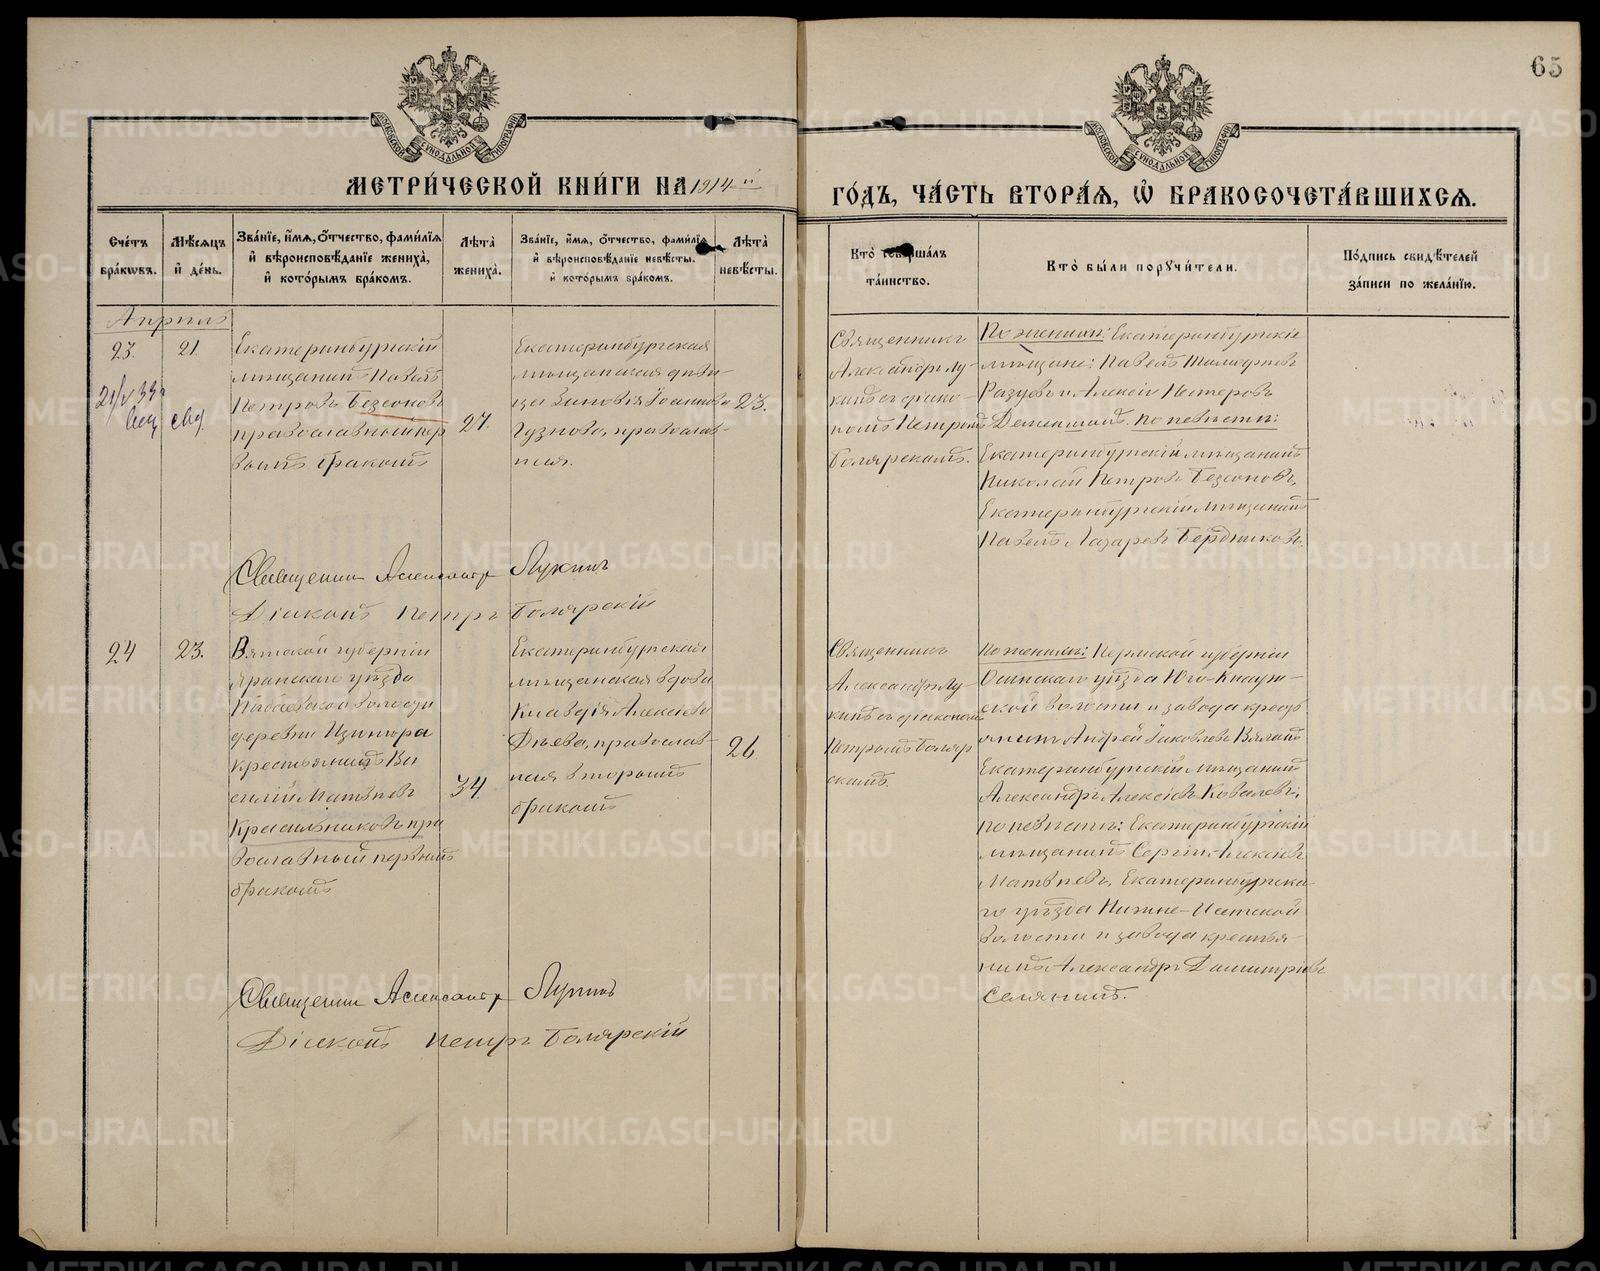 65
МОСКОВСКОЙ СУНОДАЛЬНОЙ ТИПОГРАФІИ
МОСКОВСКОЙ СУНОДАЛЬНОЙ ТИПОГРАФІИ
МЕТРИ́ЧЕСКОЙ КНИ́ГИ НА 1914 й
ГО́ДЪ, ЧА́СТЬ ВТОРА́Я, Ѡ҆ БРАКОСОЧЕТА́ВШИХСЯ.
Сче́тъ бра́кѡвъ.
Мѣ́сяцъ и҆ де́нь.
Зва́нїе, и҆́мя, ѻ҆́тчество, фами́лїя и҆ вѣроисповѣ́данїе жениха̀, и҆ кото́рымъ бра́комъ.
Лѣ́та жениха̀.
Зва́нїе, и҆́мя, ѻ҆́тчество, фами́лїя и҆ вѣроисповѣ́данїе невѣ́сты. и҆ кото́рымъ бра́комъ.
Лѣ́та невѣ́сты.
Кто̀ соверша́лъ та́инство.
Кто̀ бы́ли порꙋчи́тели.
По́дпись свидѣ́телей за́писи по жела́нїю.
Апрѣль
23.
21.
Екатеринбургскій
мѣщанинъ Павелъ
Петровъ Безсоновъ
православный пер
вымъ бракомъ
27.
Екатеринбургская
мѣщанская дѣви-
ца Зиновія Іоаннова
Гузнова, православ-
ная.
23.
Священникъ
Александръ Лу-
кинъ съ діако-
номъ Петромъ
Болярскимъ.
По женихѣ: Екатеринбургскіе
мѣщане: Павелъ
Разуевъ и Алексѣй Нестеровъ
по невѣстѣ:
Екатеринбургскій мѣщанинъ
Николай Петровъ Безсоновъ,
Екатеринбургскій мѣщанинъ
Павелъ Лазаревъ Бердниковъ.
Священникъ Александръ Лукинъ
Діаконъ Петръ Болярскій
24
23.
Вятской губерніи
Яранскаго уѣзда
волости
деревни
крестьянинъ Ва
силій Матвѣевъ
Красильниковъ пра
вославный первымъ
бракомъ
34.
Екатеринбургская
мѣщанская вдова
Клавдія Алексѣева
Дѣева, православ-
ная вторымъ
бракомъ
26.
Священникъ
Александръ Лу-
кинъ съ діакономъ
Петромъ Боляр
скимъ.
По женихѣ: Пермской губерніи
Осинскаго уѣзда Юго-Кнауф-
ской волости и завода кресть
янинъ Андрей Іаковлевъ
Екатеринбургскій мѣщанинъ
Александръ Алексѣевъ Ковалевъ;
по невѣстѣ: Екатеринбургскій
мѣщанинъ Сергѣй Алексѣевъ
Матвѣевъ, Екатеринбургска-
го уѣзда Нижне-Исетской
волости и завода крестья-
нинъ Александръ Димитріевъ
Селянинъ.
Священникъ Александръ Лукинъ
Діаконъ Петръ Болярскій
METRIKI.GASO-URAL.RU